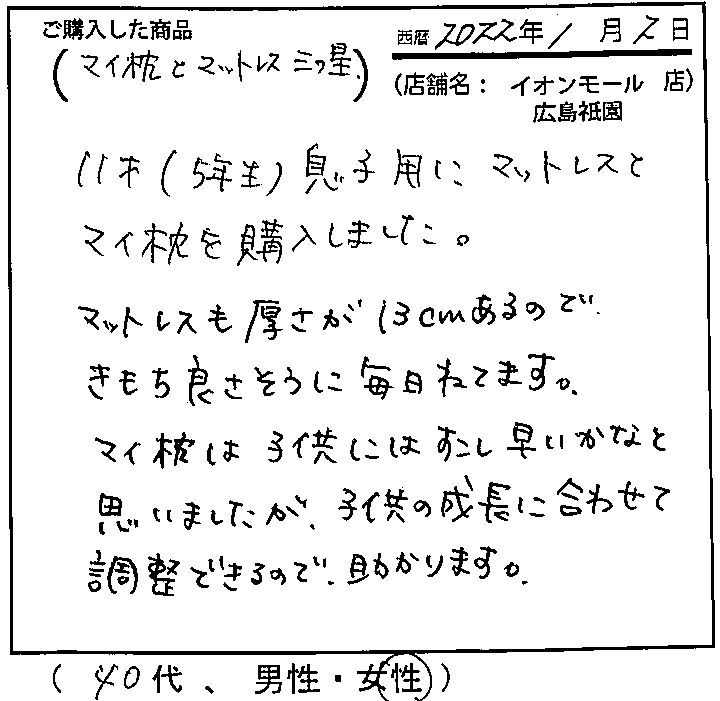 ご購入した商品
西暦 2022年 1月 2日
(マイ枕とマットレス三つ星)
(店舗名： イオンモール 店)
広島祇園
11才(5年生)息子用に マットレスと
マイ枕を購入しました。
マットレスも厚さが13cmあるので、
きもち良さそうに毎日ねてます。
マイ枕は子供にはすこし早いかなと
思いましたが、子供の成長に合わせて
調整できるので、助かります。
( 40代 、 男性・女性 )